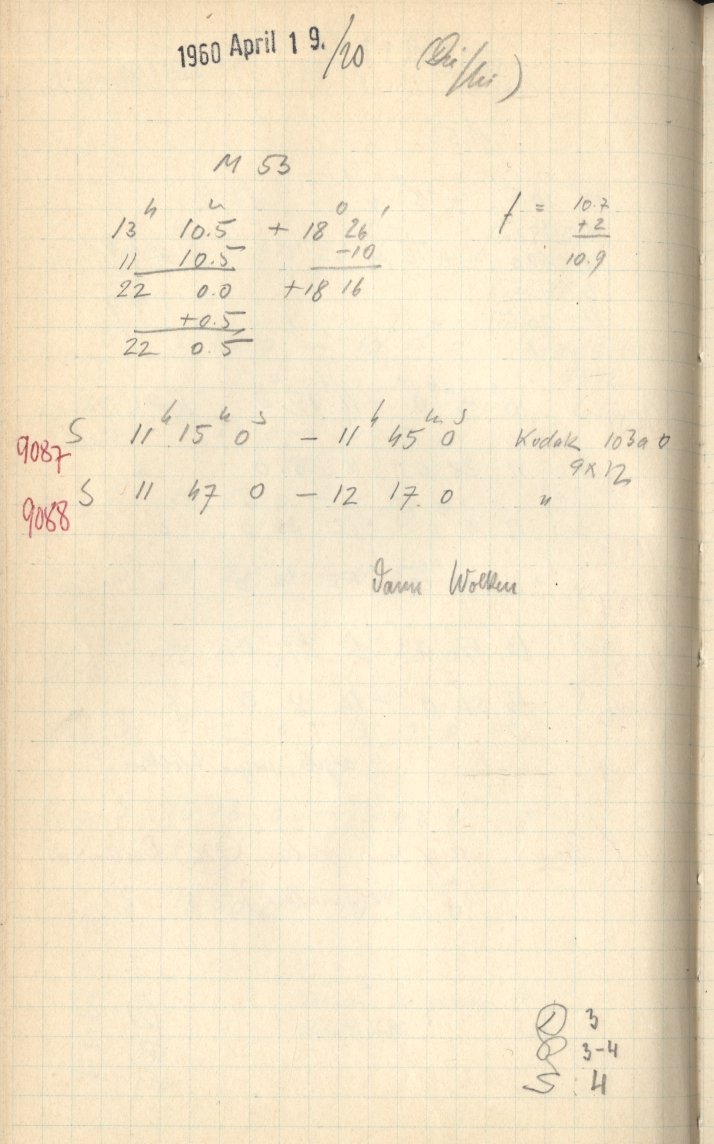 1960 April 19./20 (Di/Mi)
M 53
13ʰ 10.5ᵐ + 18° 26′ f = 10.7
11 10.5 −10 +2
22 0.0 +18 16 10.9
+0.5
22 0.5
9087 S 11ʰ 15ᵐ 0ˢ – 11ʰ 45ᵐ 0ˢ Kodak 103a0
9x12
9088 S 11 47 0 – 12 17.0 "
Dann Wolken
3
3-4
S 4